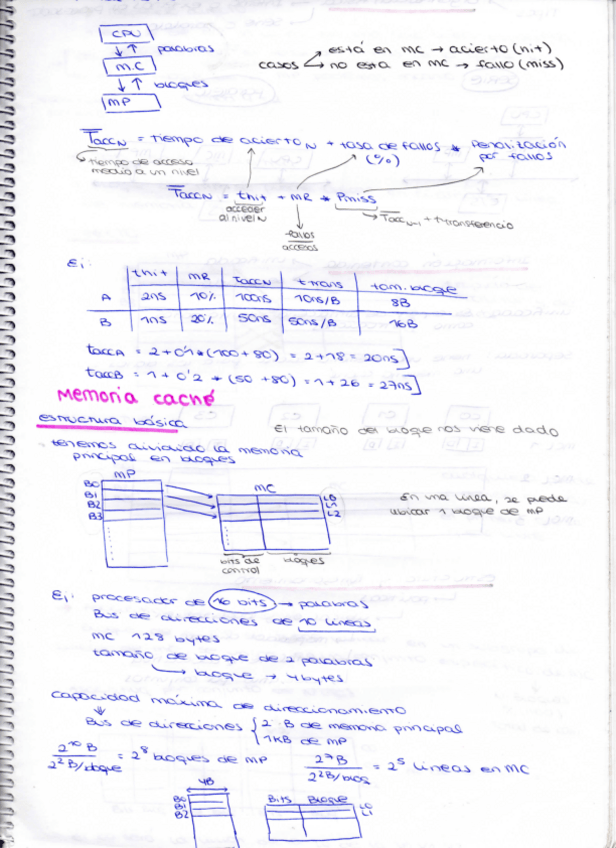 CPU
palabras
M.C
bloques
MP
casos
está en MC → acierto (hit)
no esta en MC → fallo (miss)
TaccN = tiempo de acierto N + tasa de fallos * Penalización por fallos
(%)
tiempo de acceso medio a un nivel
TaccN = thit + MR * Pmiss
acceder al nivel N
TaccN+1 + transferencia
fallos
accesos
Ej:
thit MR TaccN ttrans tam. bloque
A 2ns 10% 100ns 10ns/B 8B
B 1ns 20% 50ns 50ns/B 16B
taccA = 2 + 0'1 * (100 + 80) = 2 + 18 = 20ns]
taccB = 1 + 0'2 * (50 + 80) = 1 + 26 = 27ns]
Memoria caché
estructura básica
El tamaño del bloque nos viene dado
tenemos dividido la memoria
principal en bloques
MP
MC
B0
B1
B2
B3
L0
L1
L2
En una línea, se puede
ubicar 1 bloque de MP
bits de control
bloques
Ej: procesador de 16 bits → palabras
Bus de direcciones de 10 líneas
MC 128 bytes
tamaño de bloque de 2 palabras
bloque → 4 bytes
capacidad máxima de direccionamiento
Bus de direcciones { 2 B de memoria principal
1KB de MP
2^10 B / 2^2 B/bloque = 2^8 bloques de MP
2^7 B / 2^2 B/bloq = 2^5 líneas en MC
4B
B0
B1
B2
Bits Bloque
L0
L1